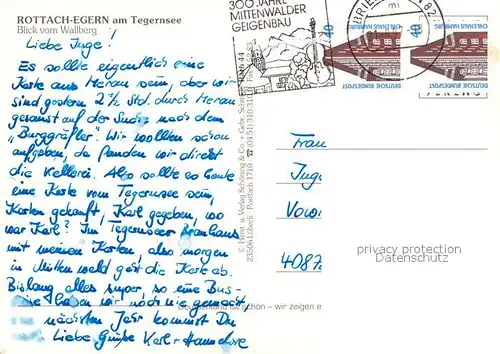 ROTTACH-EGERN am Tegernsee
Blick vom Wallberg
Liebe Inge!
Es sollte eigentlich eine
Karte aus Meran sein, aber wir
sind gestern 2½ Std. durch Meran
gesaust auf der Suche nach dem
„Burggräfler". Wir wollten schon
aufgeben, da fanden wir direkt
die Kellerei. Also sollte es heute
eine Karte vom Tegernsee sein,
Karten gekauft, Karl gegeben, wo
war Karl? Im Tegernseer Brauhaus
mit meinen Karten, also morgen
in Mittenwald geht die Karte ab.
Bislang alles super, so eine Bus-
haben wir noch nie gemacht
nächsten Jahr kommst Du
Liebe Grüße Karl + Hannelore
300 JAHRE
MITTENWALDER
GEIGENBAU
BRIE
82
mi
40
CHILEHAUS HAMBURG
DEUTSCHE BUNDESPOST
40
CHILEHAUS HAMBURG
DEUTSCHE BUNDESPOST
© Horst u. Verlag Schöning & Co. + Gebr. Schm
23266 Lübeck Postfach 1710 ☎ (0451) 310 31
Frau
Inge
4087
privacy protection
Datenschutz
schön – wir zeigen e